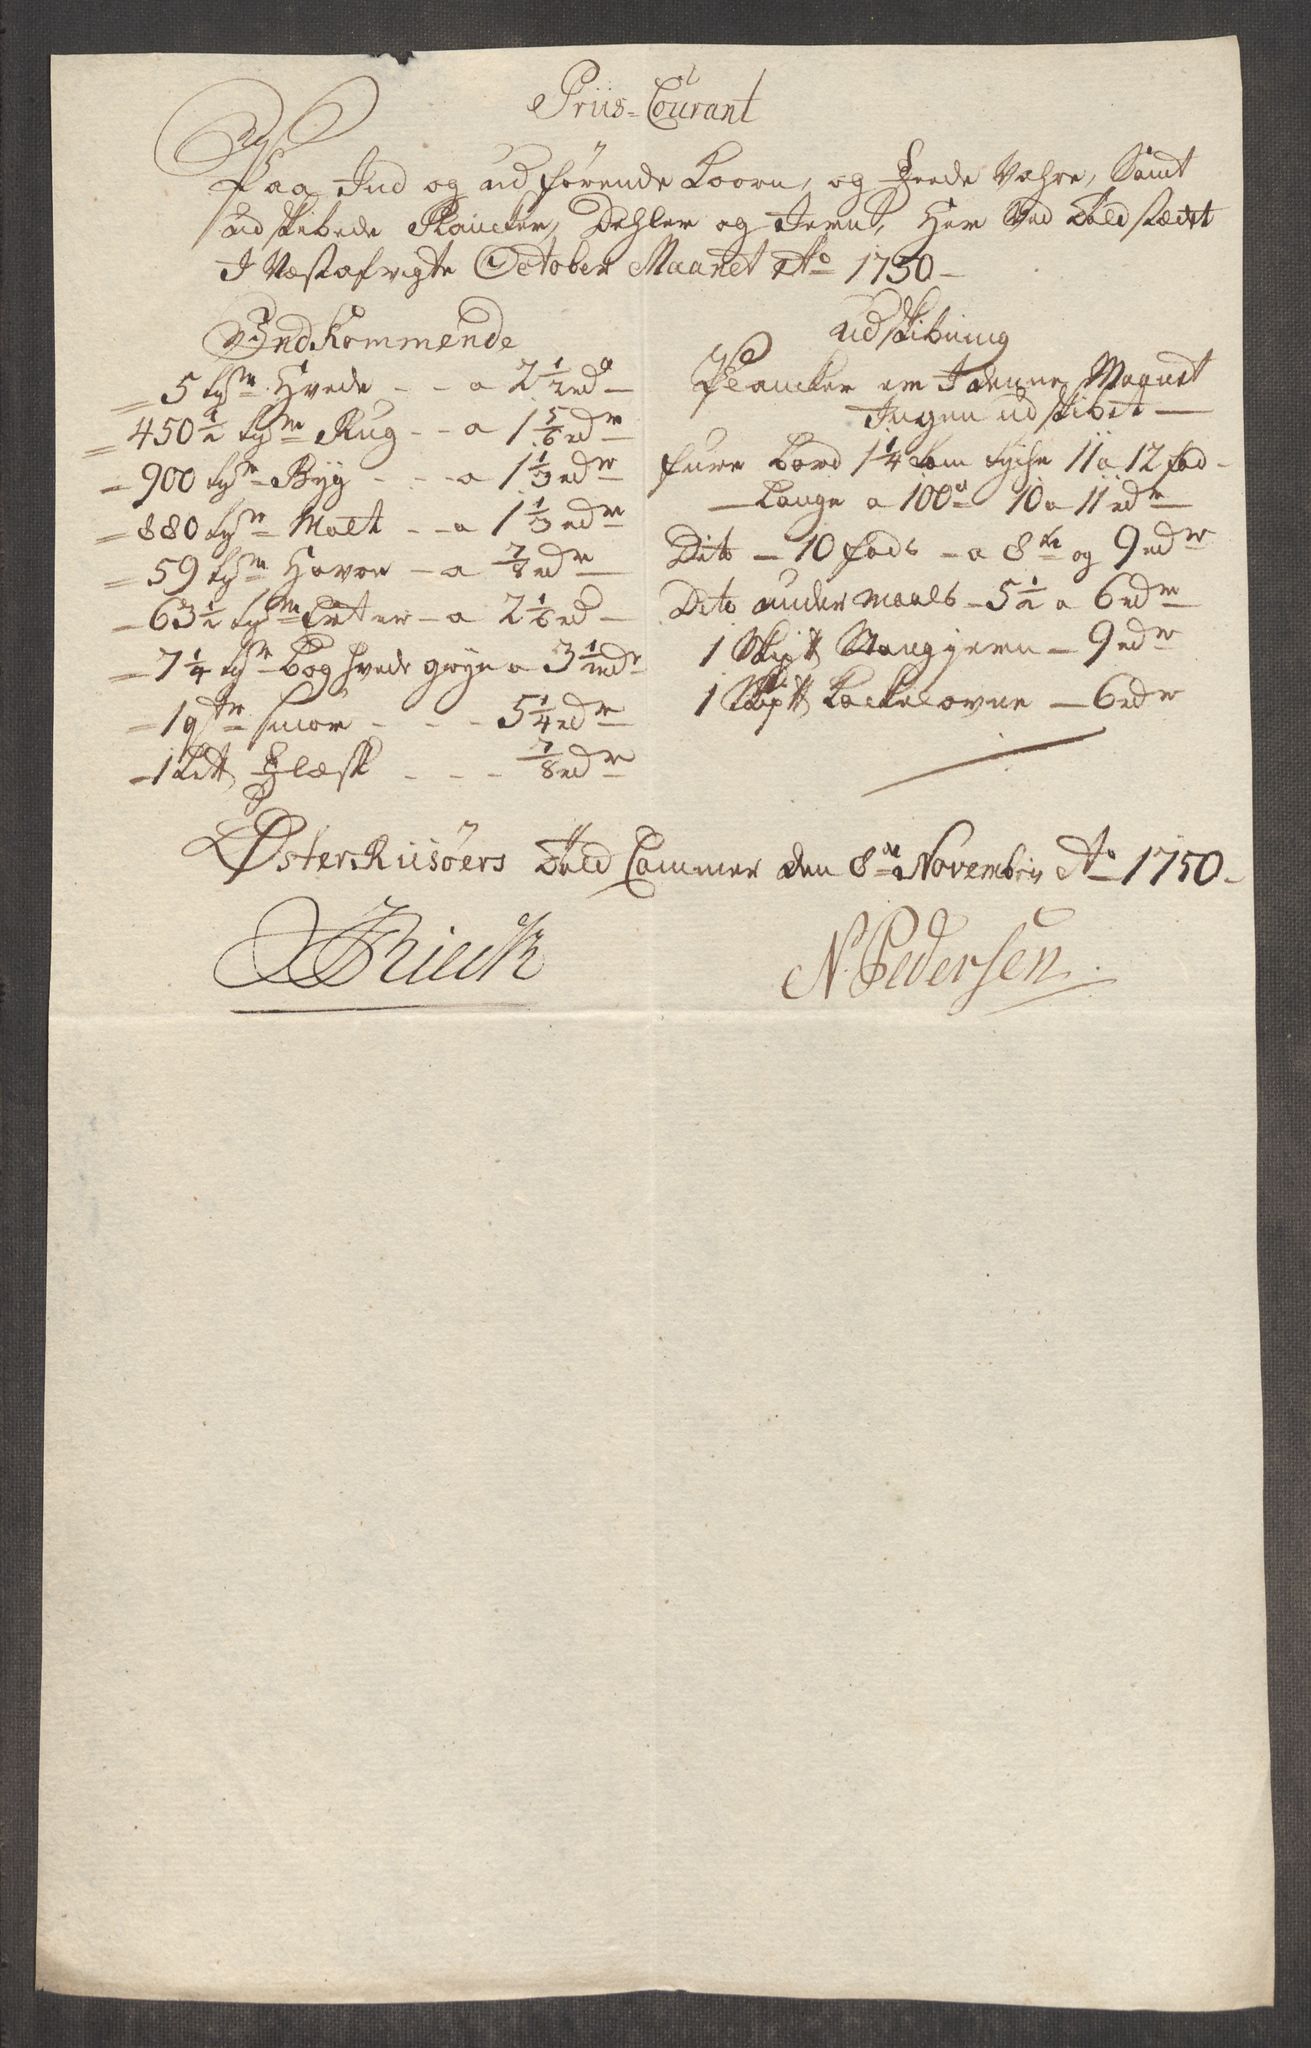 Priis-Courant
Paa Ind og udførende Koorn, og Feede Vahre, Samt
udskibede Plancker, Dehler og Jern, Her Ved Toldstædet
I Næstafvigte October Maanet Ao 1750
Indkommende
5 tdr Hvede - - a 2 1/2 rd
450 1/2 tdr Rug - - a 1 5/6 rdr
900 tdr Byg - - - a 1 1/3 rdr
880 tdr Malt - - a 1 1/3 rdr
59 tdr Havre - a 7/8 rdr
63 1/2 tdr Erter - a 2 1/6 rd
7 1/4 tdr Boghvede gryn a 3 1/2 rdr
1 qtr Smør - - - 5 1/4 rdr
1 Lit℔ Flæsk - - - 7/8 rdr
udskibning
Plancker er I denne Maanet
Ingen udskibet
Fure Bord 1 1/4 tom tycke 11 a 12 fod
Lange a 100de 10 a 11 rdr
Dito - 10 fods - a 8te og 9 rdr
Dito under maals - 5 1/2 a 6 rdr
1 Skip℔ Stangjern - 9 rdr
1 Skip℔ Kackelovne - 6 rdr
Øster Riisøers Told Cammer den 8de Novembris Ao 1750
Rieck
N. Pedersen